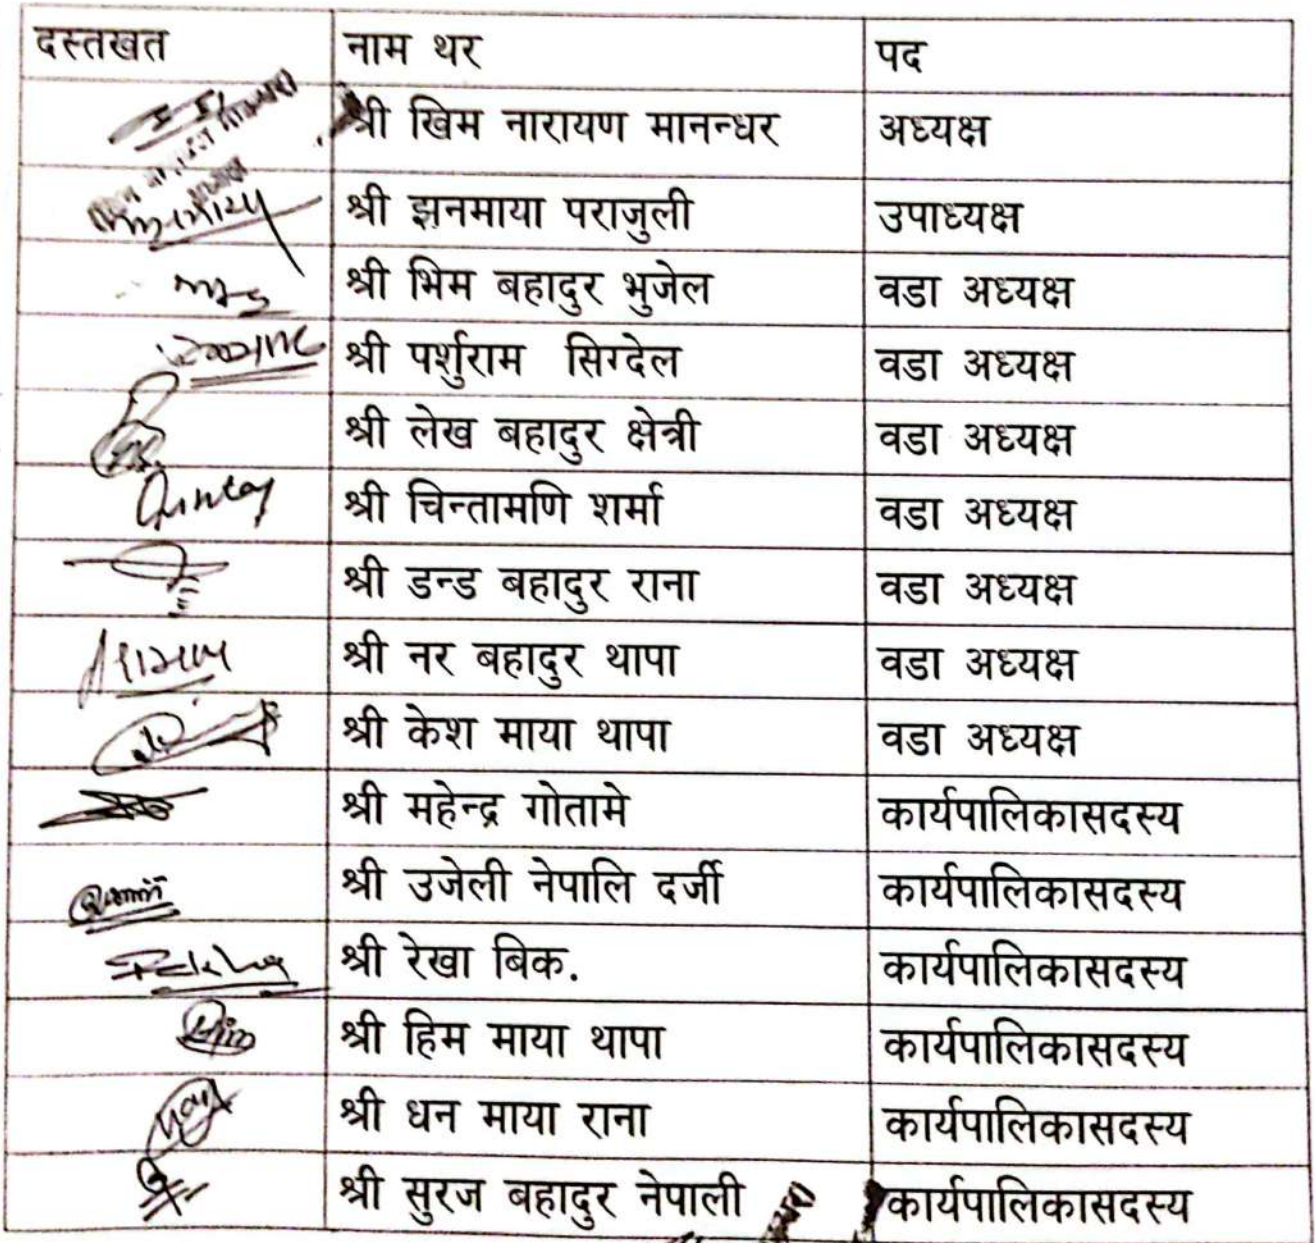 दस्तखत नाम थर पद
श्री खिम नारायण मानन्धर अध्यक्ष
श्री झनमाया पराजुली उपाध्यक्ष
श्री भिम बहादुर भुजेल वडा अध्यक्ष
श्री पर्शुराम सिग्देल वडा अध्यक्ष
श्री लेख बहादुर क्षेत्री वडा अध्यक्ष
श्री चिन्तामणि शर्मा वडा अध्यक्ष
श्री डन्ड बहादुर राना वडा अध्यक्ष
श्री नर बहादुर थापा वडा अध्यक्ष
श्री केश माया थापा वडा अध्यक्ष
श्री महेन्द्र गोतामे कार्यपालिकासदस्य
श्री उजेली नेपालि दर्जी कार्यपालिकासदस्य
श्री रेखा बिक. कार्यपालिकासदस्य
श्री हिम माया थापा कार्यपालिकासदस्य
श्री धन माया राना कार्यपालिकासदस्य
श्री सुरज बहादुर नेपाली कार्यपालिकासदस्य